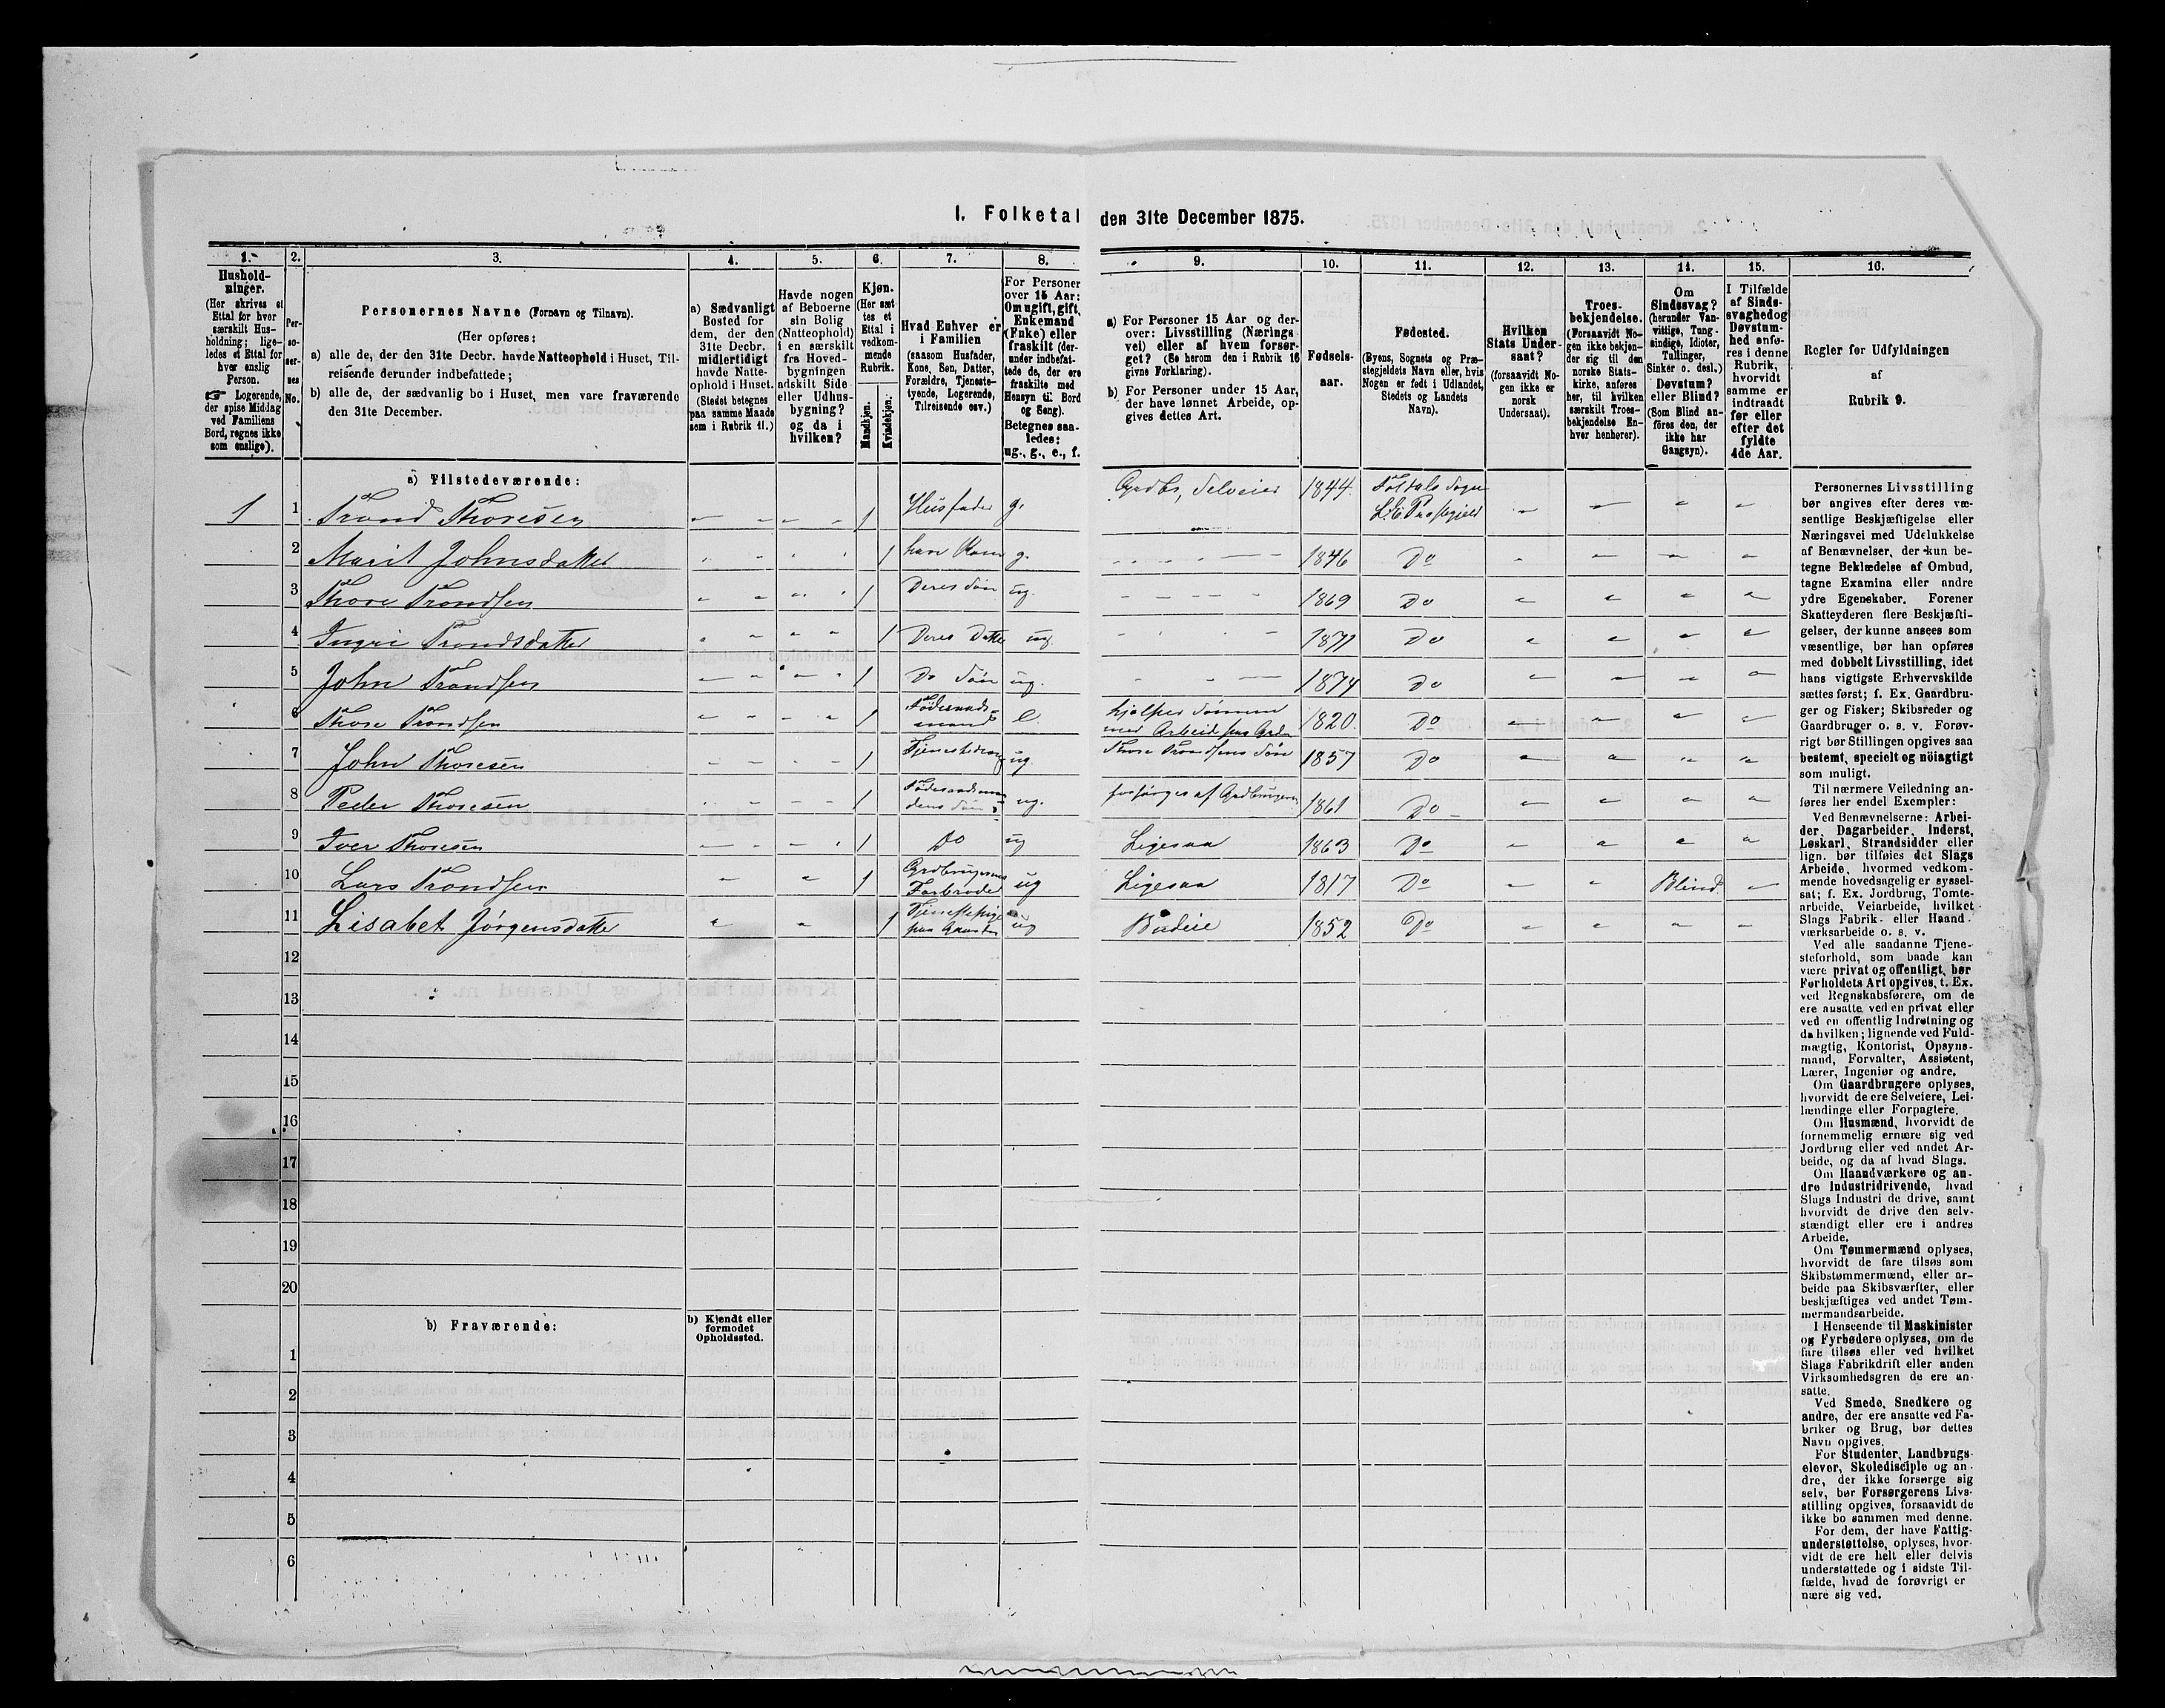 I. Folketal den 31te December 1875.
1.
Hushold-
ninger.
(Her skrives et
Ettal for hver
særskilt Hus-
holdning; lige-
ledes et Ettal for
hver enslig
Person.
☞ Logerende,
der spise Middag
ved Familiens
Bord, regnes ikke
som enslige).
2.
Per-
so-
ner-
nes
No.
3.
Personernes Navne (Fornavn og Tilnavn).
(Her opføres:
a) alle de, der den 31te Decbr. havde Natteophold i Huset, Til-
reisende derunder indbefattede;
b) alle de, der sædvanlig bo i Huset, men vare fraværende
den 31te December.
4.
a) Sædvanligt
Bosted for
dem, der den
31te Decbr.
midlertidigt
havde Natte-
ophold i Huset.
(Stedet betegnes
paa samme Maade
som i Rubrik 11.)
5.
Havde nogen
af Beboerne
sin Bolig
(Natteophold)
i en særskilt
fra Hoved-
bygningen
adskilt Side
eller Udhus-
bygning?
og da i
hvilken?
6.
Kjøn.
(Her sæt
tes et
Ettal i
vedkom-
mende
Rubrik.
Mandkjøn.
Kvindekjøn.
7.
Hvad Enhver er
i Familien
(saasom Husfader,
Kone, Søn, Datter,
Forældre, Tjeneste-
tyende, Logerende,
Tilreisende osv.)
8.
For Personer
over 15 Aar:
Om ugift, gift,
Enkemand
(Enke) eller
fraskilt (der-
under indbefat-
tede de, der ere
fraskilte med
Hensyn til Bord
og Seng).
Betegnes saa-
ledes:
ug., g., e., f.
9.
a) For Personer 15 Aar og der-
over: Livsstilling (Nærings
vei) eller af hvem forsør-
get? (Se herom den i Rubrik 16
givne Forklaring).
b) For Personer under 15 Aar,
der have lønnet Arbeide, op-
gives dettes Art.
10.
Fødsels-
aar.
11.
Fødested.
(Byens, Sognets og Præ-
stegjeldets Navn eller, hvis
Nogen er født i Udlandet,
Stedets og Landets
Navn).
12.
Hvilken
Stats Under-
saat?
(forsaavidt No-
gen ikke er
norsk
Undersaat).
13.
Troes-
bekjendelse.
(Forsaavidt No-
gen ikke bekjen-
der sig til den
norske Stats-
kirke, anføres
her, til hvilken
særskilt Troes-
bekjendelse En-
hver henhører).
14.
Om
Sindssvag?
(herunder Van-
vittige, Tung-
sindige, Idioter,
Tullinger,
Sinker o. desl.)
Døvstum?
eller Blind?
(Som Blind an-
føres den, der
ikke har
Gangsyn).
15.
I Tilfælde
af Sinds-
svaghed og
Døvstum-
hed anfø-
res i denne
Rubrik,
hvorvidt
samme er
indtraadt
før eller
efter det
fyldte
4de Aar.
16.
Regler for Udfyldningen
af
Rubrik 9.
a) Tilstedeværende:
1 1 Trond Thoresen 1 Husfader g. Grdbr, Selveier 1844. Foldals Sogn
L.E. Præstegjeld
2 Marit Johnsdatter 1 hans Kone g. 1846 Do
3 Thore Trondsen 1 Deres Søn ug. 1869 Do
4 Ingri Trondsdatter 1 Deres Datter ug. 1871 Do
5 John Trondsen 1 Do Søn ug. 1874 Do
6 Thore Trondsen 1 Føderaads-
mand e. hjelper Sønnen
med Arbeid paa Grdn 1820. Do
7 John Thoresen 1 Tjenestedreng ug Thore Trondsens Søn 1857 Do
8 Peder Thoresen 1 Føderaadsman
dens Søn ug. forsørges af Grdbrugeren 1861 Do
9 Iver Thoresen 1 Do ug Ligesaa 1863 Do
10 Lars Trondsen 1 Grdbrugerens
Farbroder ug Ligesaa 1817 Do Blind
11 Lisabet Jørgensdatter 1 Tjenestepige
paa Gaarden ug Budeie 1852 Do
12
13
14
15
16
17
18
19
20
b) Fraværende:
b) Kjendt eller
formodet
Opholdssted.
1
2
3
4
5
6
Personernes Livsstilling
bør angives efter deres væ-
sentlige Beskjæftigelse eller
Næringsvei med Udelukkelse
af Benævnelser, der kun be-
tegne Beklædelse af Ombud,
tagne Examina eller andre
ydre Egenskaber. Forener
Skatteyderen flere Beskjæfti-
gelser, der kunne ansees som
væsentlige, bør han opføres
med dobbelt Livsstilling, idet
hans vigtigste Erhvervskilde
sættes først; f. Ex. Gaardbru-
ger og Fisker; Skibsreder og
Gaardbruger o. s. v. Forøv-
rigt bør Stillingen opgives saa
bestemt, specielt og nöiagtigt
som muligt.
Til nærmere Veiledning an-
føres her endel Exempler:
Ved Benævnelserne: Arbei-
der, Dagarbeider, Inderst,
Løskarl, Strandsidder eller
lign. bør tilføies det Slags
Arbeide, hvormed vedkom-
mende hovedsagelig er syssel-
sat; f. Ex. Jordbrug, Tomte-
arbeide, Veiarbeide, hvilket
Slags Fabrik- eller Haand-
værksarbeide o. s. v.
Ved alle saadanne Tjene-
steforhold, som baade kan
være privat og offentligt, bør
Forholdets Art opgives, t. Ex.
ved Regnskabsførere, om de
ere ansatte ved en privat eller
ved en offentlig Indretning og
da hvilken; lignende ved Fuld-
mægtig, Kontorist, Opsyns-
mand, Forvalter, Assistent,
Lærer, Ingeniør og andre.
Om Gaardbrugere oplyses,
hvorvidt de ere Selveiere, Lei-
lændinge eller Forpagtere.
Om Husmænd, hvorvidt de
fornemmelig ernære sig ved
Jordbrug eller ved andet Ar-
beide, og da af hvad Slags.
Om Haandværkere og an-
dre Industridrivende, hvad
Slags Industri de drive, samt
hvorvidt de drive den selv-
stændigt eller ere i andres
Arbeide.
Om Tømmermænd oplyses,
hvorvidt de fare tilsøs som
Skibstømmermænd, eller ar-
beide paa Skibsværfter, eller
beskjæftiges ved andet Tøm-
mermandsarbeide.
I Henseende til Maskinister
og Fyrbødere oplyses, om de
fare tilsøs eller ved hvilket
Slags Fabrikdrift eller anden
Virksomhedsgren de ere an-
satte.
Ved Smede, Snedkere og
andre, der ere ansatte ved Fa-
briker og Brug, bør dettes
Navn opgives.
For Studenter, Landbrugs-
elever, Skoledisciple og an-
dre, der ikke forsørge sig
selv, bør Forsørgerens Livs-
stilling opgives, forsaavidt de
ikke bo sammen med denne.
For dem, der have Fattig-
understøttelse, oplyses, hvor-
vidt de ere helt eller delvis
understøttede og i sidste Til-
fælde, hvad de forøvrigt er
nære sig ved.